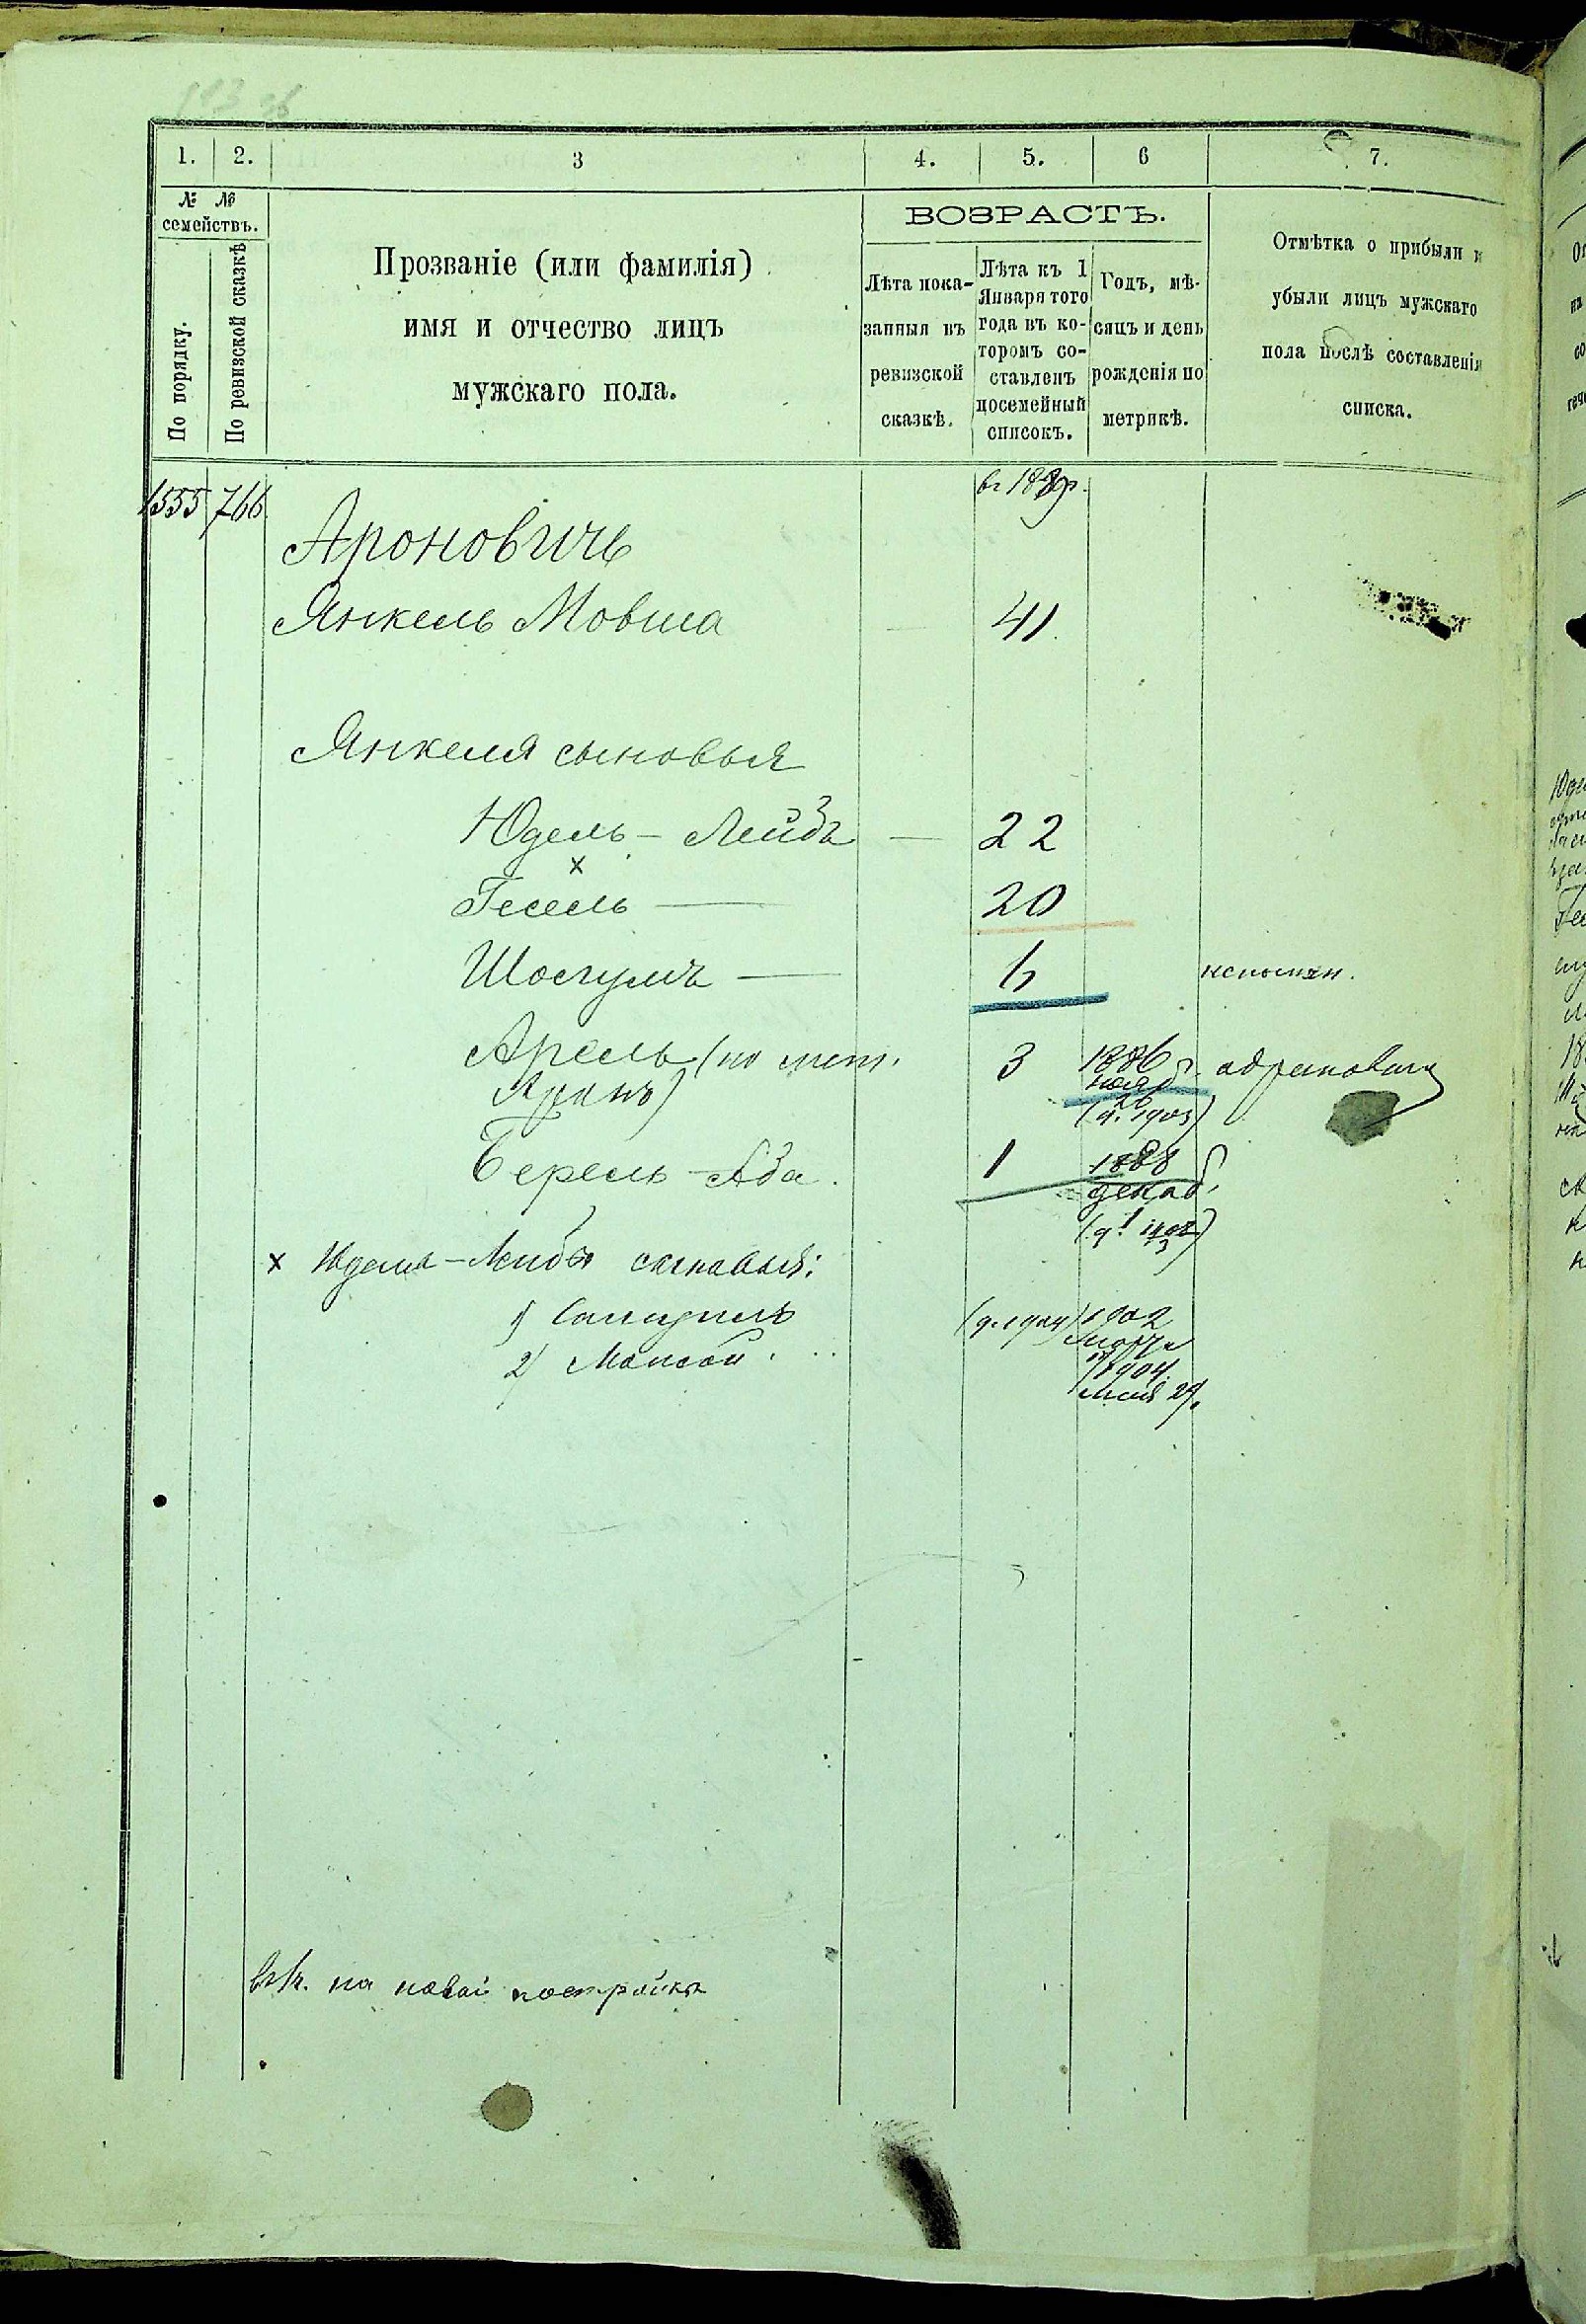 1. 2. 3 4. 5. 6 7.
№ № семействъ.
По порядку.
По ревизской сказкѣ
Прозваніе (или фамилія)
имя и отчество лицъ
мужскаго пола.
ВОЗРАСТЪ.
Лѣта пока-
занныя въ
ревизской
сказкѣ.
Лѣта къ 1
Января того
года въ ко-
торомъ со-
ставленъ
посемейный
списокъ.
Годъ, мѣ-
сяцъ и день
рожденія по
метрикѣ.
Отмѣтка о прибыли и
убыли лицъ мужскаго
пола послѣ составленія
списка.
1555 766
Ароновичъ
Янкель Мовша 41.
Янкеля сыновья
Юдель - Лейба 22
х
Гесель 20
Шоегумъ 6
Арель (по мет. 3 1886 г.
Аронъ) нояб. 26
(д. 1903)
Берель - Аба. 1 1888
декаб.
х Юделя - Лейбы сыновья:
1) Самуилъ (д. 1904) 1902
2) Мойсей 1904.
на новой постройкѣ